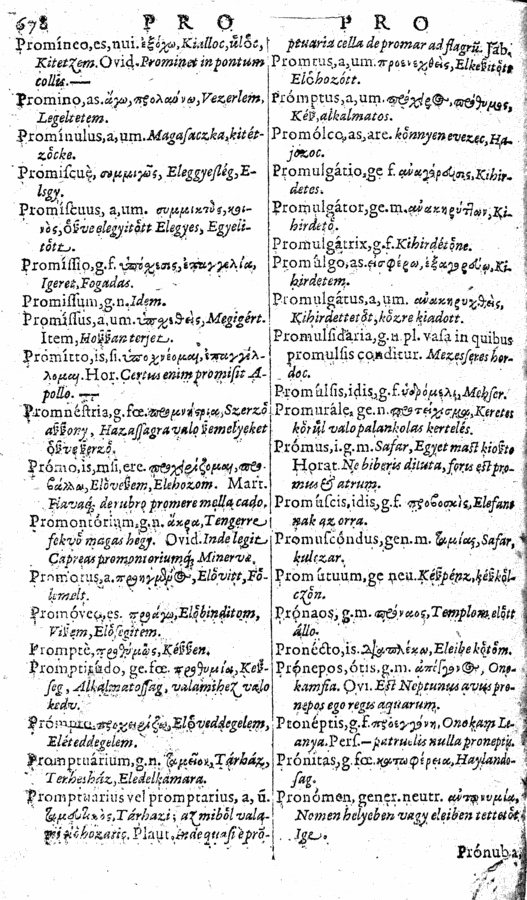 678 PRO PRO
Promíneo,es,nui. ἐξόχω, Kiálloc, űlőc,
Kitetzem. Ovid. Prominet in pontum
collis.—
Promino,as. ἄγω, προλαύνω, Vezerlem,
Legeltetem.
Promínulus,a,um. Magasaczka,kitét-
zőcke.
Promiscuè, συμμιγῶς, Eleggyesleg, E-
lsgy.
Promíscuus, a,um. συμμικτὸς, κοι-
νὸς, őszve elegyitőtt Elegyes, Egyeli-
tőtt.
Promíssio,g.f. ὑπόχεσις, ἐπαγγελία,
Igeret, Fogadas.
Promissum,g.n. Idem.
Promíssus,a,um. Megigért.
Item, Hoszszan terjet.
Promitto,is,si. ὑποχνέομαι, ἐπαγγέλ-
λομαι. Hor. Certus enim promisit A-
pollo. —
Promnéstria,g.fœ. προμνήστρια, Szerző
aszszony, Hazassagra valo szemelyeket
őszve szerző.
Prómo,is,msi,ere. προχειρίζομαι, προ-
βάλλω, Elővészem, Elehozom. Mart.
Flavaq; de rubro promere mella cado.
Promontórium,g.n. ἄκρα, Tengerre
fekvő magas hegy. Ovid. Inde legit
Capreas promontoriumq; Minervæ.
Promotus,a. Elővitt, Fő-
lemelt.
Promóveo,es. προάγω, Előbinditom,
Viszem, Elősegitem.
Promptè, προθυμῶς, Készszen.
Promptitúdo, ge.fœ. προθυμία, Kesz-
seg, Alkalmatossag, valamihez valo
kedv.
Prómpto, προχειρίζω, Előveddegelem,
Eléteddegelem.
Promptuárium,g.n. ταμεῖον, Tárház,
Terhesház, Eledelkamara.
Promptuárius vel promptarius, a, ũ.
Tárhazi; az miből vala-
mi kihozatic. Plaut. inde quasi è prō-
ptuaria cella de promar ad flagrũ. Jáb.
Promtus,a,um. προενεχθεὶς, Elkeszitőtt
Előhozótt.
Prómptus,a,um. πρόχειρος, πρόθυμος,
Kész, alkalmatos.
Promólco,as,are. kőnnyen evezec, Ha-
jozoc.
Promulgátio,ge f. ἀνακήρυσις, Kihir-
detes.
Promulgátor,ge.m. Ki-
hirdető.
Promulgátrix,g.f. Kihirdetőne.
Promúlgo,as. εἰσφέρω, Ki-
hirdetem.
Promulgátus,a,um. ἀνακηρυχθεὶς,
Kihirdettetőt, kőzre kiadott.
Promulsidária,g.n.pl. vasa in quibus
promulsis conditur. Mezesseres hor-
doc.
Promúlsis,idis,g.f. ὑδρόμελι, Mehser.
Promurále, ge.n. προτείχισμα, Keretes
kőrũl valo palankolas kertelés.
Prómus,i.g.m. Safar, Egyet mast kioszto
Horat. Ne biberis diluta, foris est pro-
mus & atrum.
Promúscis,idis,g.f. προβοσκὶς, Elefant
nak az orra.
Promuscóndus,gen.m. ταμίας, Safar,
kulczar.
Promútuum,ge neu. Készpénz, készkől-
czőn.
Prónaos,g.m. πρόναος, Templom előtt
állo.
Pronécto,is. Eleibe kőtőm.
Prónepos,ótis,g.m. Ono-
kamfia. Ovi. Est Neptunus avus pro-
nepos ego regis aquarum.
Pronéptis,g.f. Onokam Le-
anya. Pers.—patruelis nulla proneptis.
Prónitas,g.fœ. καταφέρεια, Haylando-
sag.
Pronómen, gener.neutr. ἀντωνυμία,
Nomen helyeben vagy eleiben tettetőt
Ige.
Prónuba,